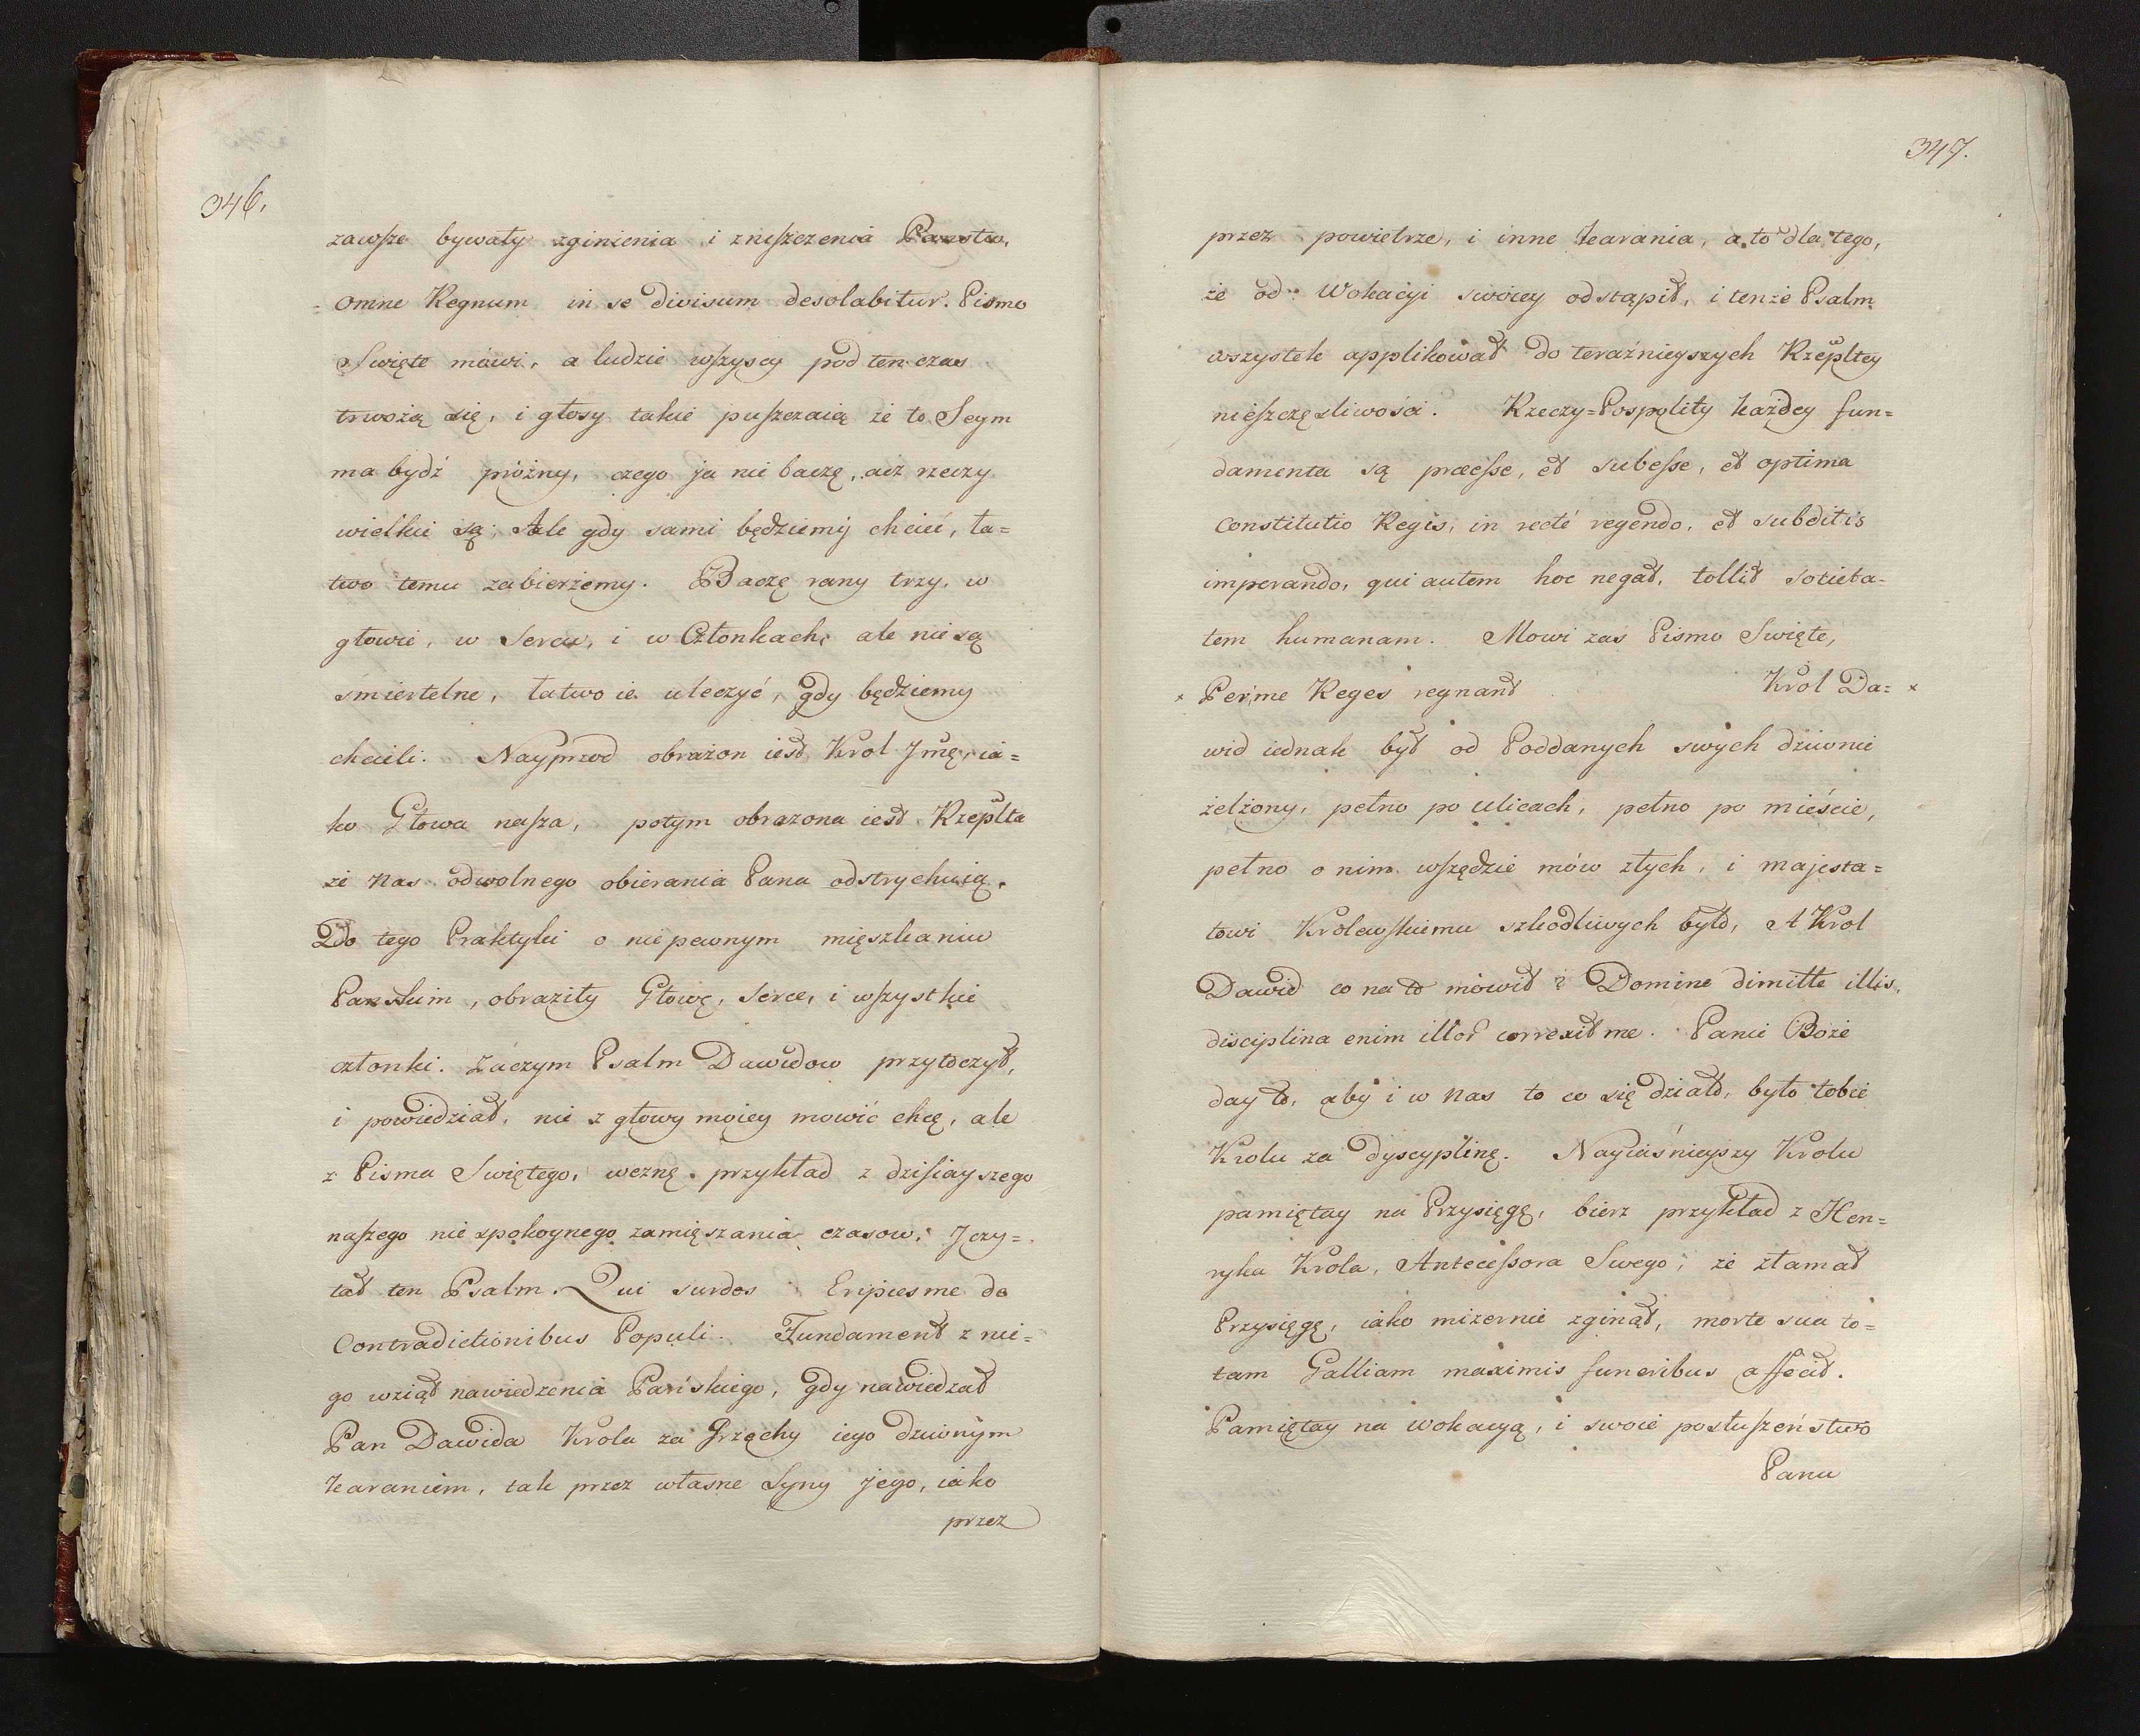 346.
zawſze bywały zginienia i znisſzczenia Panstw,
= omne Regnum in se divisum desolabitur. Pismo
Swięte mówi, a ludzie wſzyscy pod ten czas
trwożą się, i głosy takie puſzczaią że to Seym
ma bydź próżny, czego ja nie baczę, aiż rzeczy
wielkie są; Ale gdy sami będziemy chcieć, ła=
two temu zabierżemy. Baczę rany trzy, w
głowie, w Sercu, i w Członkach, ale nie są
śmiertelne, łatwo ie uleczyć, gdy będziemy
chcieli. Nayprzod obrażon iest Krol Jmę, ia=
ko Głowa naſza, potym obrazona iest Rzeplta
że nas odwolnego obierania Pana odstrychuią.
Do tego Praktyki o niepewnym mięszkaniu
Panskim, obraziły Głowę, Serce, i wſzystkie
członki. Zaczym Psalm Dawidow przytoczył,
i powiedział, nie z głowy moiey mowić chcę, ale
z Pisma Swiętego, weznę przykład z dzisiayszego
naſzego niespokoynego zamięszania czasow. J czy=
tał ten Psalm. Qui surdos Eripies me de
Contradictionibus Populi. Fundament z nie=
go wziął nawiedzenia Pańskiego, gdy nawiedzał
Pan Dawida Krola za Grzęchy iego dziwnym
karaniem, tak przez własne Syny jego, iako
przez
347.
przez powietrze, i inne karania, a to dla tego,
że od Wokacyi swoiey odstąpił, i tenże Psalm
wszystek applikował do teraźnieyszych Rzepltey
nieſzczęsliwości. Rzeczy=Pospolity każdey fun=
damenta są præeſse, et subeſse, et optima
constitutio Regis, in recté regendo, et subditis
imperando, qui autem hoc negat, tollit societa=
tem humanam. Mowi zas Pismo Swięte,
× Per me Reges regnant Krol Da= ×
wid iednak był od Poddanych swych dziwnie
żelżony, pełno po ulicach, pełno po mieście,
pełno o nim wſzędzie mów złych, i majesta=
towi Krolewſkiemu szkodliwych było, A Krol
Dawid co na to mówił? Domine dimitte illis,
disciplina enim illor correxit me. Panie Boże
day to, aby i w nas to co się działo, było tobie
Krolu za dyscyplinę. Nayiaśnieyszy Krolu
pamiętay na Przysięgę, bierz przykład z Hen=
ryka Krola, Anteceſsora Swego, że złamał
Przysięgę, iako mizernie zginął, morte sua to=
tam Galliam maximis funeribus affecit.
Pamiętay na wokacyą, i swoie posłuſzeństwo
Panu